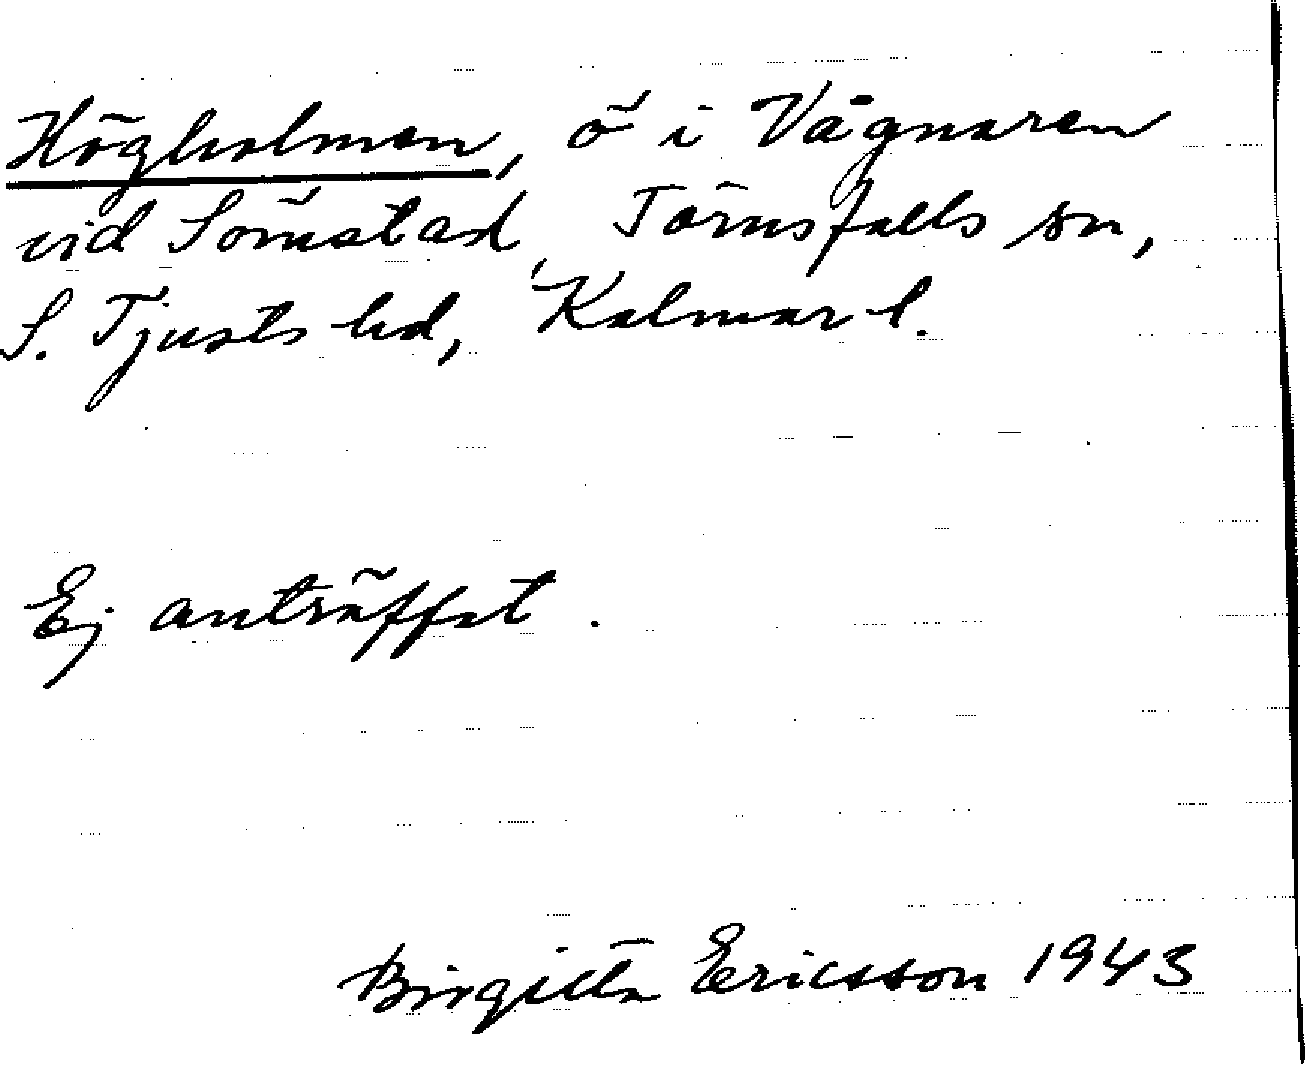 Högholmen, ö i Vågnaren
vid Sörnstad, Törnsfalls sn,
S. Tjusts hd, Kalmar l.
Ej anträffat.
Birgitta Ericsson 1943